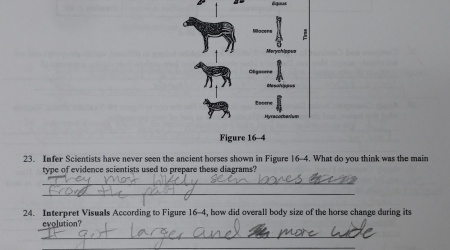 Equus
Miocene
Merychippus
Time
Oligocene
Mesohippus
Eocene
Hyracotherium
Figure 16–4
23. Infer Scientists have never seen the ancient horses shown in Figure 16–4. What do you think was the main
type of evidence scientists used to prepare these diagrams?
They most likely seen bones
From the past
24. Interpret Visuals According to Figure 16–4, how did overall body size of the horse change during its
evolution?
It got larger and more wide